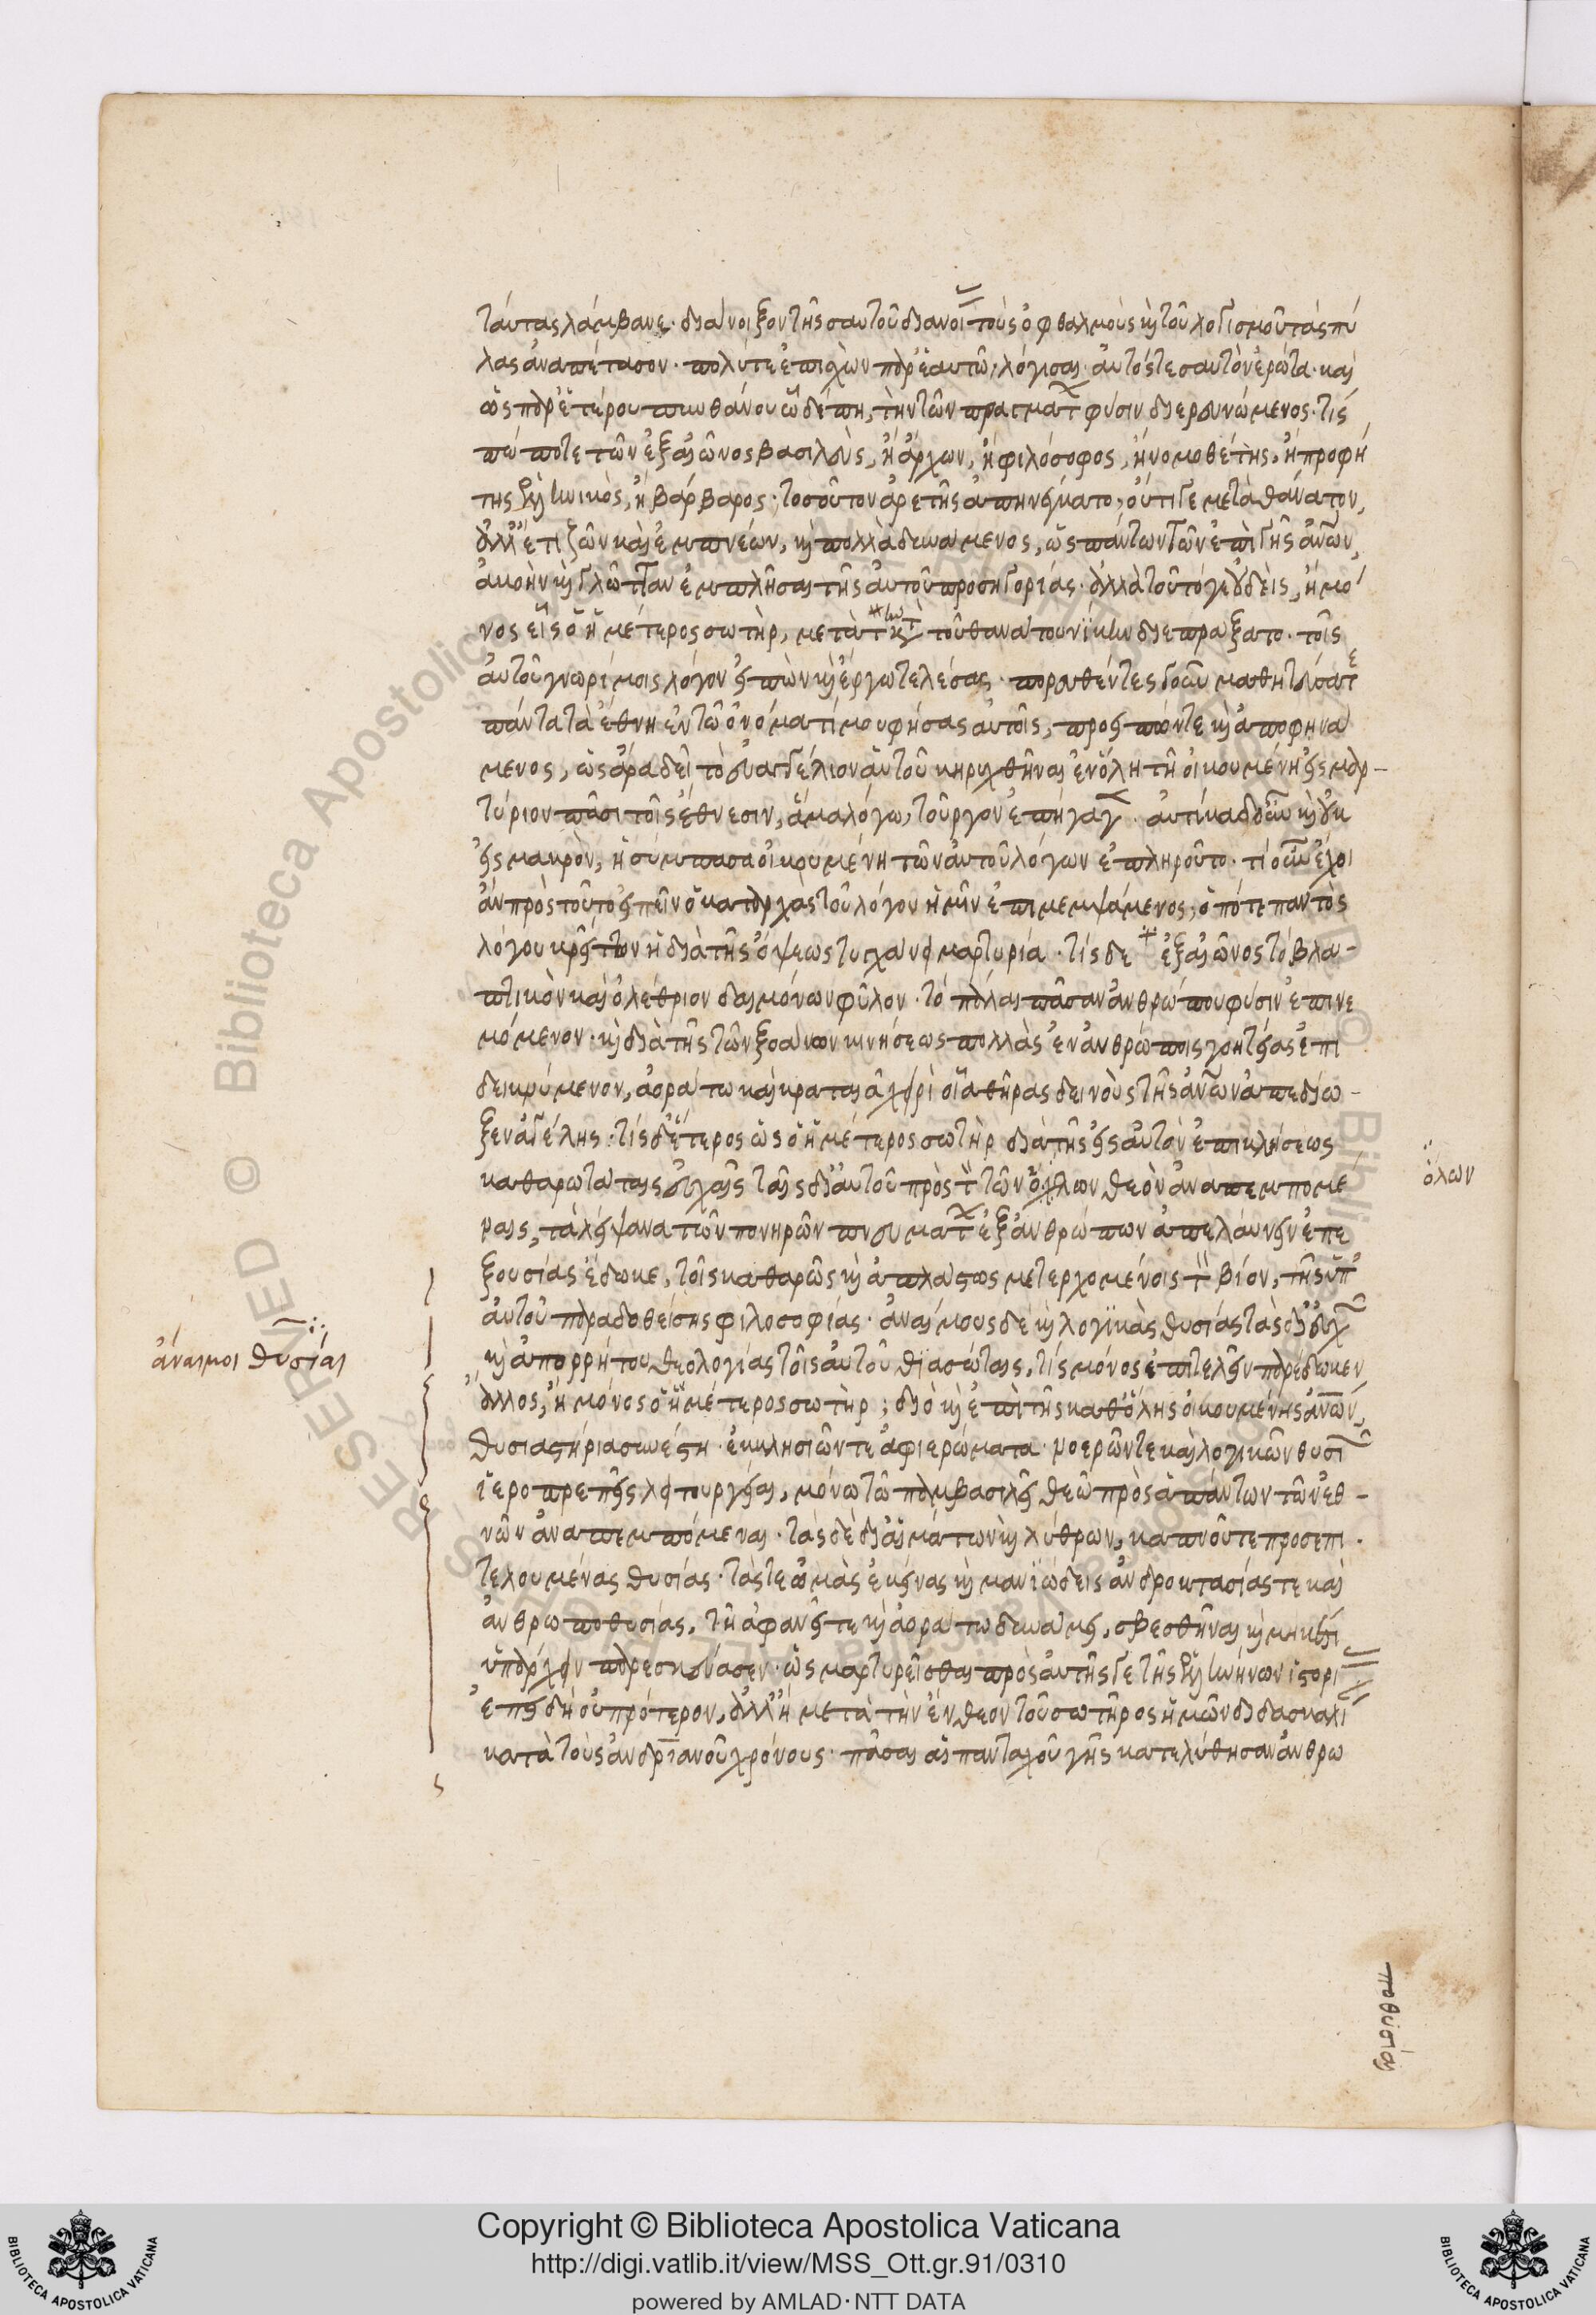 ταύτας λάμβανε· διάνοιξον τῆς σαυτοῦ διανοί τοὺς ὀφθαλμοὺς κὶ τοῦ λογισμοῦ τὰς πύ
λας ἀναπέτασον· πολύ τε ἐπισχὼν παρ' ἑαυτῶ, λόγισαι· αὐτός τε σαυτὸν ἐρώτα· καὶ
ὡς παρ' ἑτέρου πυνθάνου ὧδέ πη, τὴν τῶν πραγμάτ φύσιν διερευνώμενος· τίς
πώποτε τῶν ἐξ αἰῶνος βασιλεὺς, ἢ ἄρχων, ἢ φιλόσοφος, ἢ νομοθέτης, ἢ προφή
της ἑλληνικὸς, ἢ βάρβαρος· τοσοῦτον ἀρετῆς ἀπηνέγκατο, οὔ τι γε μετὰ θάνατον,
ἀλλ' ἔτι ζῶν καὶ ἐμπνέων, κὶ πολλὰ δυνάμενος, ὡς πάντων τῶν ἐπὶ γῆς ἀνων,
ἀκοὴν κὶ γλῶτταν ἐμπλῆσαι τῆς αὐτοῦ προσηγορίας· ἀλλὰ τοῦτό γε οὐδεὶς, ἢ μό
νος εἷς ὁ ἡμέτερος σωτὴρ, μετὰ τ κ τοῦ θανάτου νίκην διεπράξατο· τοῖς
αὐτοῦ γνωρίμοις λόγον εἰπὼν κὶ ἔργω τελέσας· πορευθέντες γοῦν μαθητεύσατε
πάντα τὰ ἔθνη ἐν τῶ ὀνόματί μου φήσας αὐτοῖς, προειπών τε κὶ ἀποφηνά
μενος, ὡς ἄρα δεῖ τὸ εὐαγγέλιον αὐτοῦ κηρυχθῆναι ἐν ὅλη τῆ οἰκουμένη εἰς μαρ-
τύριον πᾶσι τοῖς ἔθνεσιν, ἅμα λόγω, τοὖργον ἐπήγαγ· αὐτίκα γοῦν κὶ οὐκ
εἰς μακρὸν, ἡ σύμπασα οἰκουμένη τῶν αὐτοῦ λόγων ἐπληροῦτο· τί οὖν ἔχοι
ἂν πρὸς τοῦτο εἰπεῖν ὁ καταρχὰς τοῦ λόγου ἡμῖν ἐπιμεμψάμενος, ὁπότε παντὸς
λόγου κρείττων ἡ διὰ τῆς ὄψεως τυγχάνει μαρτυρία· τίς δὲ ἐξ αἰῶνος τὸ βλα-
πτικὸν καὶ ὀλέθριον δαιμόνων φῦλον· τὸ πάλαι πᾶσαν ἀνθρώπου φύσιν ἐπινε
μόμενον· κὶ διὰ τῆς τῶν ξοάνων κινήσεως πολλὰς ἐν ἀνθρώποις γοητείας ἐπι
δεικνύμενον, ἀοράτω καὶ κραταιᾶ χειρὶ οἷα θῆρας δεινοὺς τῆς ἀνων ἀπεδίω-
ξεν ἀγέλης· τίς δ' ἕτερος ὡς ὁ ἡμέτερος σωτὴρ διὰ τῆς εἰς αὐτὸν ἐπικλήσεως
καθαρωτάταις εὐχαῖς ταῖς δι' αὐτοῦ πρὸς τ τῶν ὅλων θεὸν ἀναπεμπομέ
ναις, τὰ λείψανα τῶν πονηρῶν πνευμάτ ἐξ ἀνθρώπων ἀπελαύνειν ἐπ' ἐ
ξουσίας ἔδωκε, τοῖς καθαρῶς κὶ ἀπλάστως μετερχομένοις τ βίον, τῆς ὑπ'
αὐτοῦ παραδοθείσης φιλοσοφίας· ἀναίμους δὲ κὶ λογικὰς θυσίας τὰς δι' εὐχ
κὶ ἀπορρήτου θεολογίας τοῖς αὐτοῦ θιασώταις, τίς μόνος ἐπιτελεῖν παρέδωκεν
ἄλλος, ἢ μόνος ὁ ἡμέτερος σωτήρ; διὸ κὶ ἐπὶ τῆς καθόλης οἰκουμένης ἀνων,
θυσιαστήρια συνέστη· ἐκκλησιῶν τε ἀφιερώματα· νοερῶν τε καὶ λογικῶν θυσι
ἱεροπρεπεῖς λειτουργίαι, μόνω τῶ παμβασιλεῖ θεῶ πρὸς ἁπάντων τῶν ἐθ-
νῶν ἀναπεμπόμεναι· τὰς δὲ δι' αἱμάτων κὶ λύθρων, καπνοῦ τε προσεπι·
τελουμένας θυσίας· τάς τε ὠμὰς ἐκείνας κὶ μανιώδεις ἀνδροκτασίας τε καὶ
ἀνθρωποθυσίας, τῆ ἀφανεῖ τε κὶ ἀοράτω δυνάμει, σβεσθῆναι κὶ μηκέτι
ὑπάρχειν παρεσκεύασεν· ὡς μαρτυρεῖσθαι πρὸς αὐτῆς γε τῆς ἑλλήνων ἱστορί
ἐπεὶ δὴ οὐ πρότερον, ἀλλ' ἢ μετὰ τὴν ἔνθεον τοῦ σωτῆρος ἡμῶν διδασκαλί
κατὰ τοὺς ἀνδριανοῦ χρόνους· πᾶσαι αἱ πανταχοῦ γῆς κατελύθησαν ἀνθρω
ὅλων
ἀναιμοι θυσίαι
ποθυσίαι
Copyright © Biblioteca Apostolica Vaticana
http://digi.vatlib.it/view/MSS_Ott.gr.91/0310
powered by AMLAD·NTT DATA